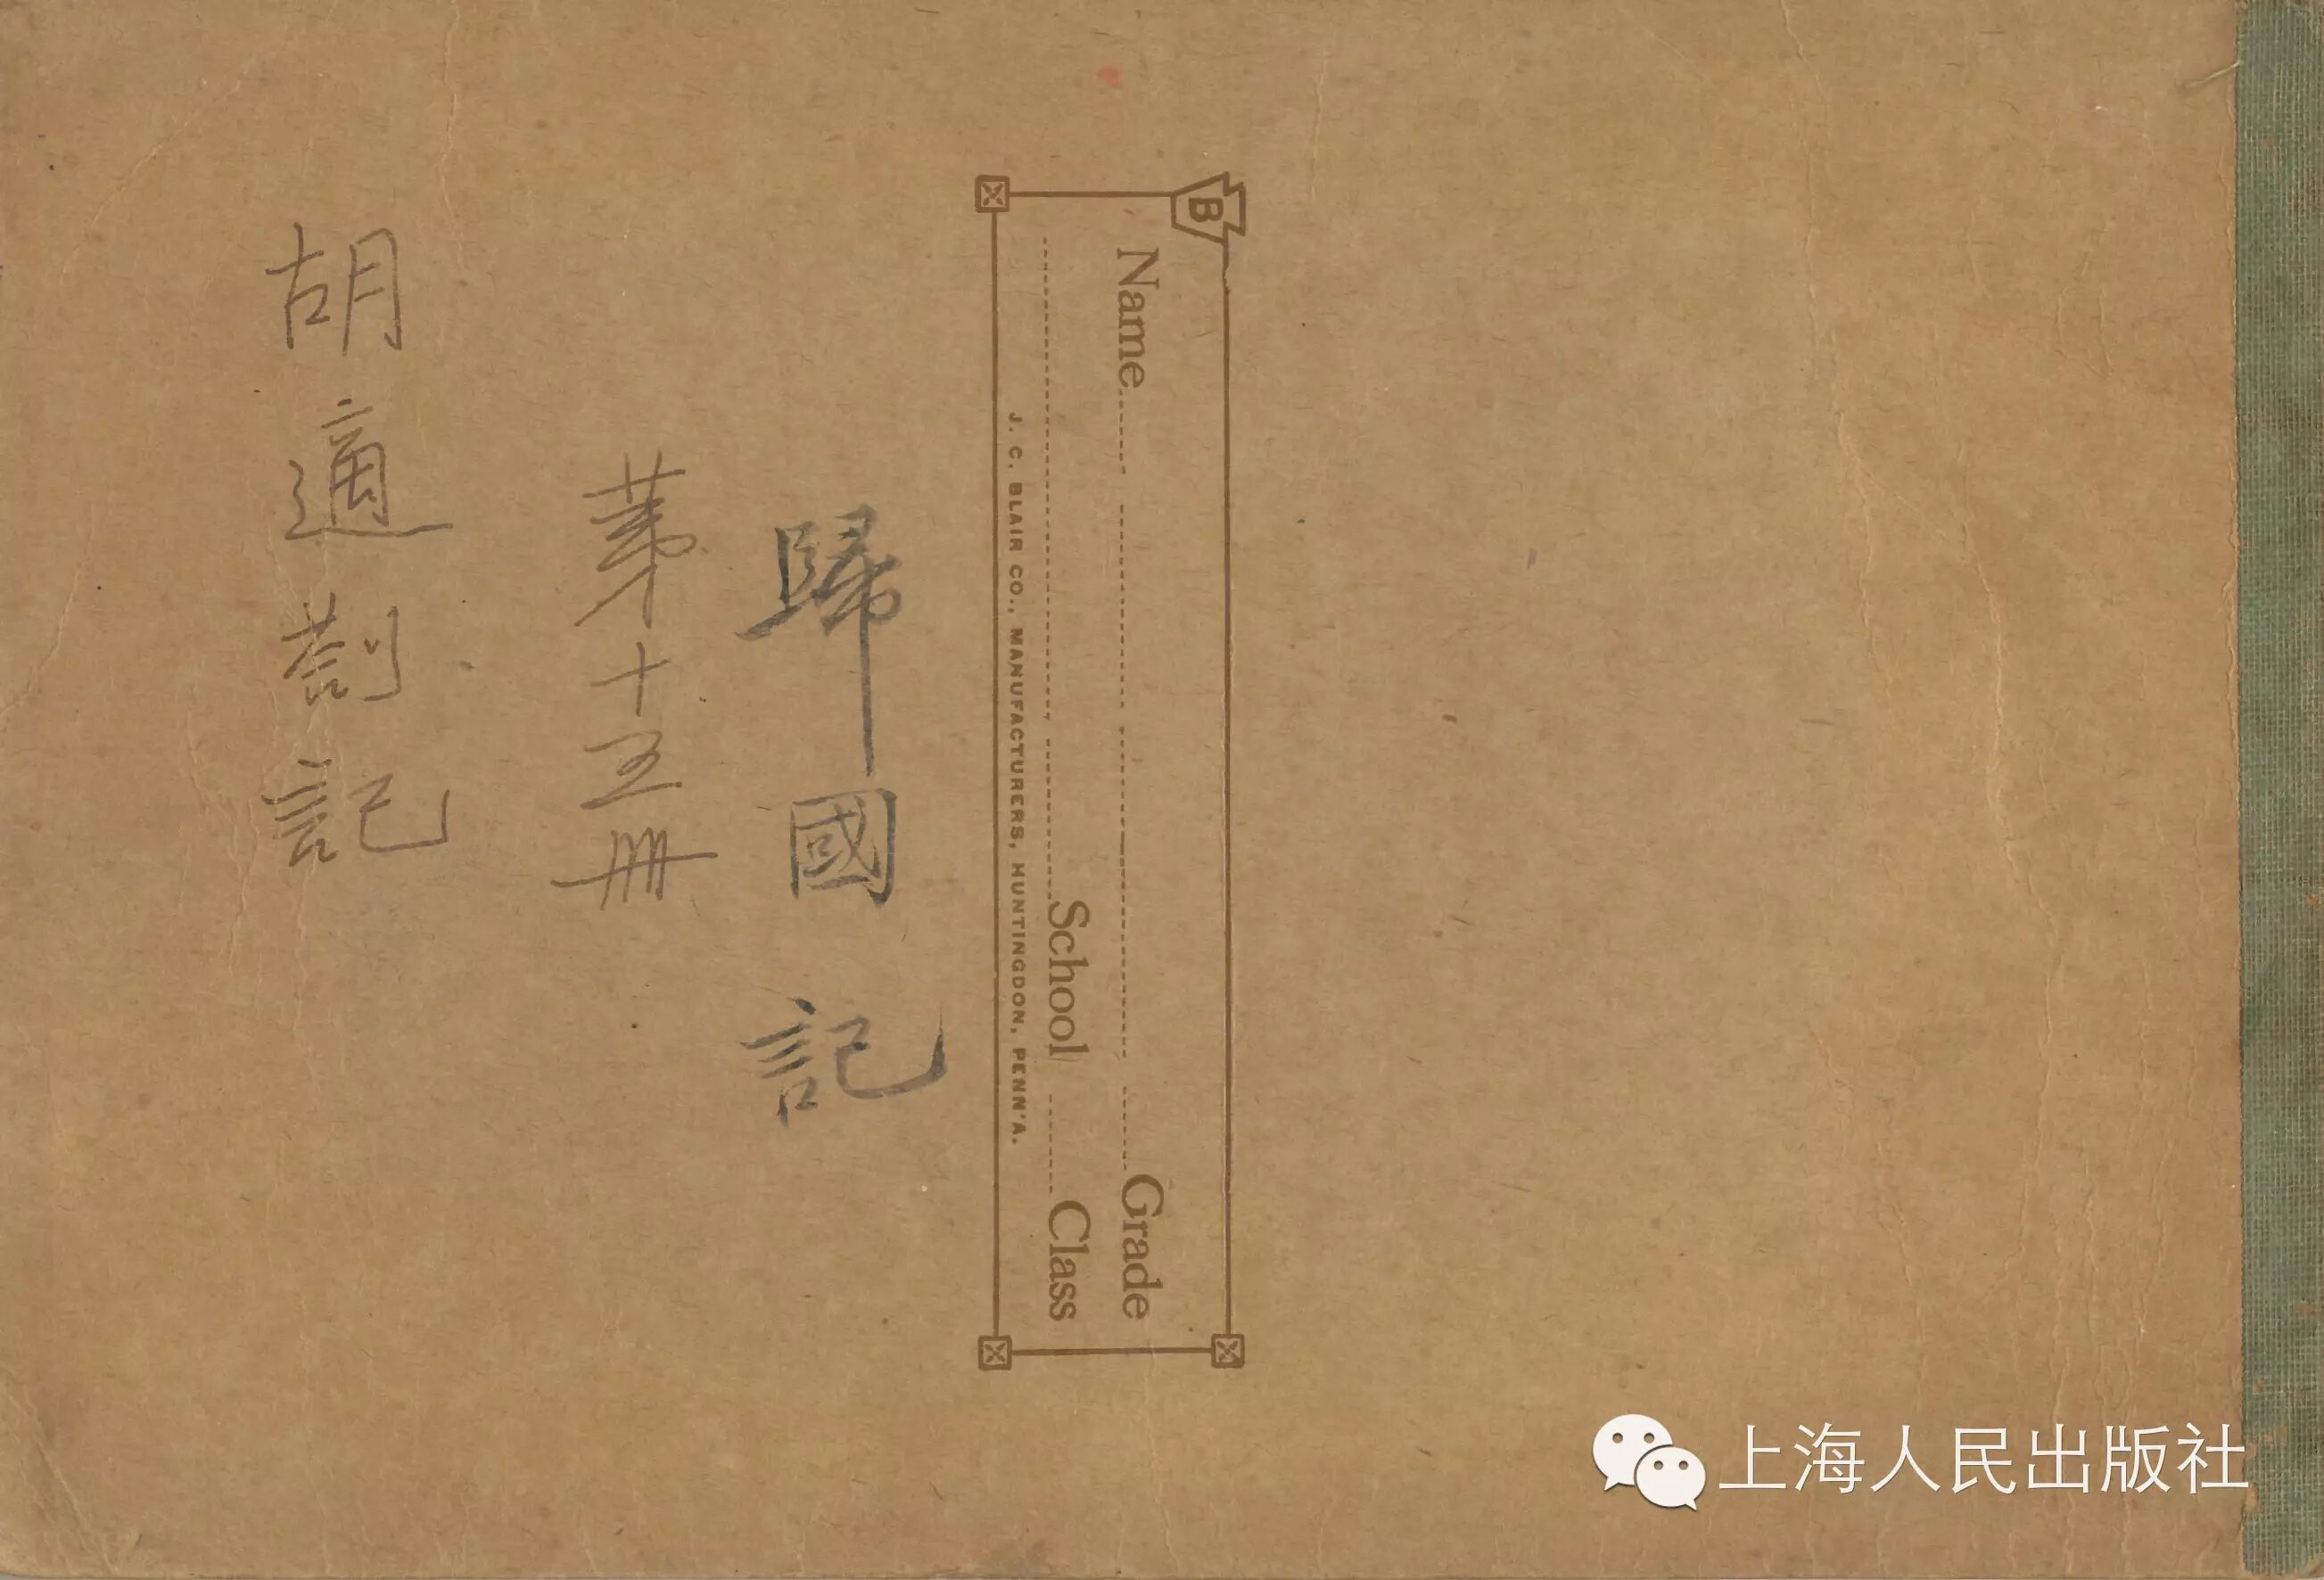 歸國記
第十五冊
胡適劄記
B
Name Grade
School Class
J. C. BLAIR CO., MANUFACTURERS, HUNTINGDON, PENN'A.
上海人民出版社